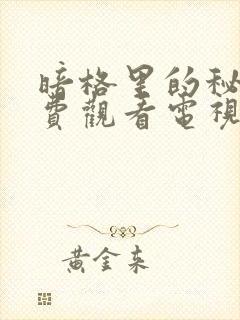 暗格里的秘
費觀看電視
黃金来